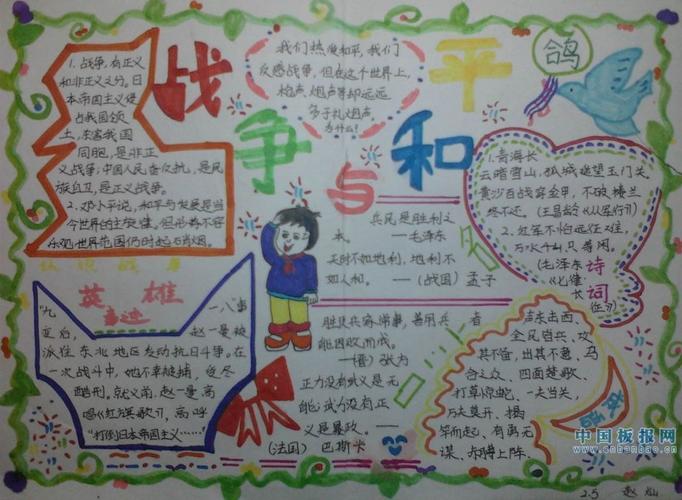 战争与和平
鸽
1、战争,有正义
和非正义之分。日
本帝国主义侵
占我国领
土,杀害我国
同胞,是非正
义战争;中国人民奋反抗,是民
族自卫,是正义战争。
2、邓小平说,和平与发展是当
今世界的主旋律。但形势不容
乐观,世界范围仍时起硝烟。
我们热爱和平,我们
反感战争,但在这个世界上,
枪声、炮声等却远远
多于礼炮声,
为什么!
1、青海长
云暗雪山,孤城遥望玉门关。
黄沙百战穿金甲,不破楼兰
终不还。(王昌龄《从军行》)
2、红军不怕远征难,
万水千山只等闲。
(毛泽东
《七律
长
征》)
诗词
兵民是胜利之
本。 —毛泽东
天时不如地利,地利不
如人和。—(战国)孟子
英雄
事迹
“九一八”事
变后,赵一曼被
派往东北地区发动抗日斗争。在
一次战斗中,她不幸被捕,受尽
酷刑。就义前,赵一曼高
唱《红旗歌》,高呼
“打倒日本帝国主义……”
胜败兵家常事,善用兵者
能因败而成。
—(晋)张为
正力没有武义是无
能;武力没有正
义是暴政。—
(法国)巴斯卡
声东击西、
全民皆兵、攻
其不备、出其不意、乌
合之众、四面楚歌、
打草惊蛇、一夫当关,
万夫莫开、揭
竿而起、有勇无
谋、赤膊上阵。
成语
中国板报网
www.cnbanbao.cn
2.5 赵灿